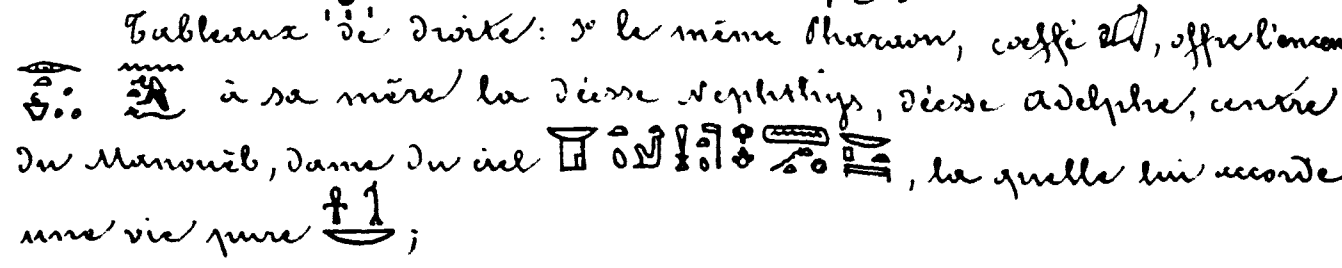 Tableaux de droite: 1° le même Pharaon, coeffé, offre l'encens
à sa mère la déesse Nephthys, déesse Adelphe, centre
du Manouêb, dame du ciel, la quelle lui accorde
une vie pure;